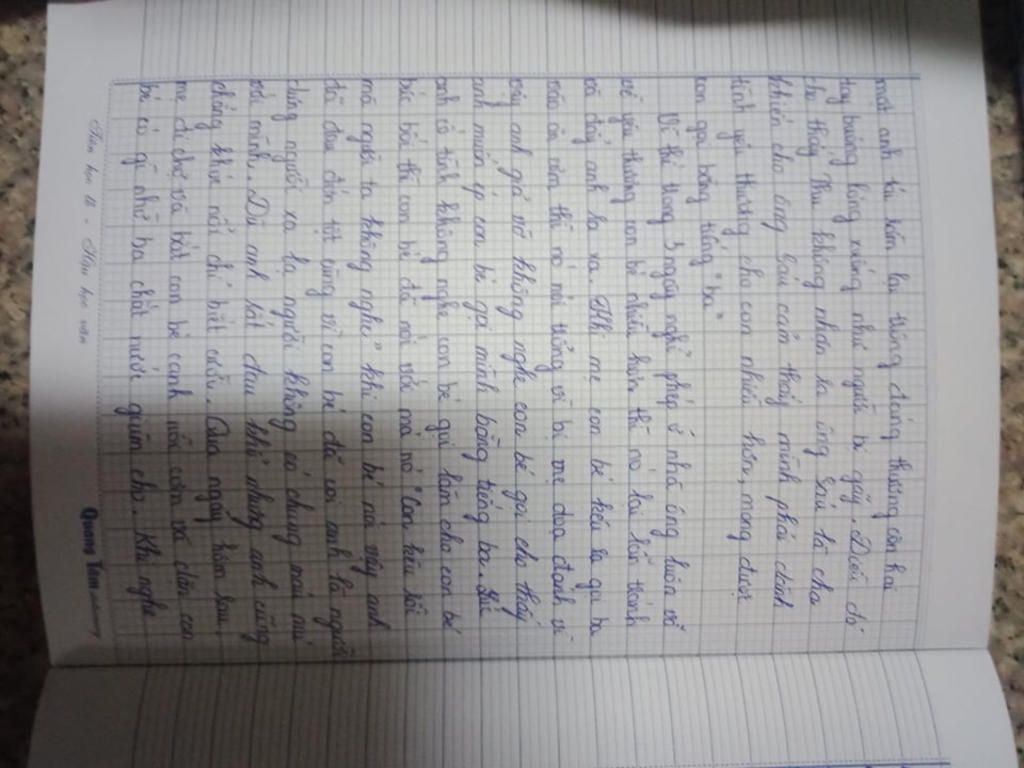 mặt anh tái lại trông đáng thương còn hai
tay buông lõng xuống như người bị gãy. Điều đó
cho thấy Thu không nhận ra ông Sáu là cha
khiến cho ông Sáu cảm thấy mình phải dành
tình yêu thương cho con nhiều hơn, mong được
con gọi bằng tiếng "ba"
Vì thế trong 3 ngày nghỉ phép ở nhà ông luôn vỗ
về yêu thương con bé nhiều hơn thì nó lại lẫn tránh
và đẩy anh ra xa. Khi mẹ con bé kêu ra gọi ba
vào ăn cơm thì nó nói trổng vì bị mẹ dọa đánh vì
vậy anh giả vờ không nghe con bé gọi cho thấy
anh muốn ép con bé gọi mình bằng tiếng ba.
anh cố tình không nghe con bé gọi làm cho con bé
bức bối thì con bé đã nói với má nó "Con kêu rồi
mà người ta không nghe" khi con bé nói vậy anh
đã đau đớn tột cùng vì con bé đã coi anh là người
dưng người xa lạ người không có chung máu mủ
với mình. Dù anh rất đau khổ nhưng anh cũng
chẳng khóc nổi chỉ biết cười. Qua ngày hôm sau,
mẹ đi chợ và bắt con bé canh nồi cơm và dặn con
bé có gì nhờ ba chắt nước giùm cho. Khi nghe
Tiên học lễ - Hậu học văn
Quang Tâm